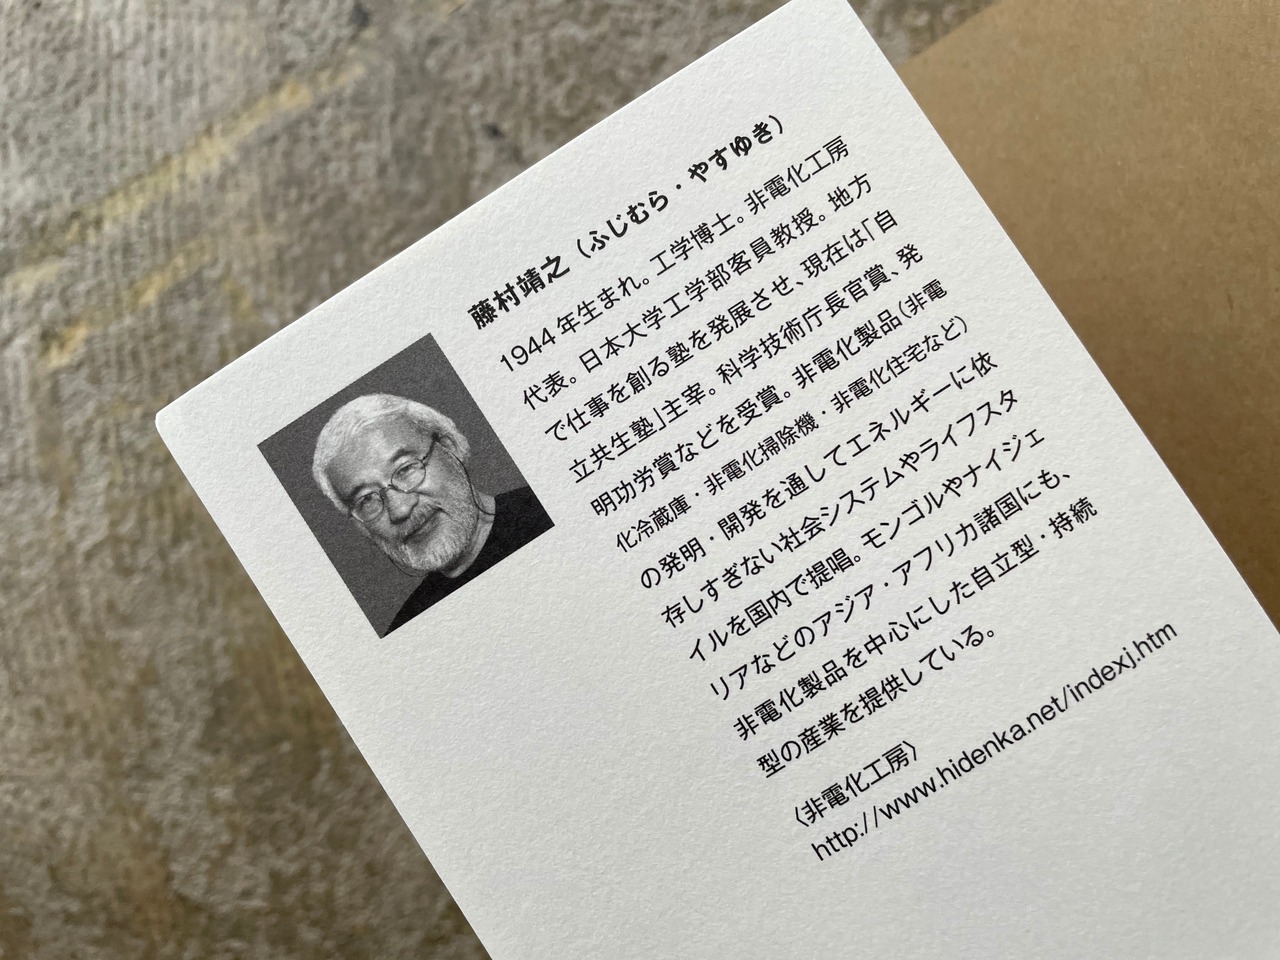 藤村靖之（ふじむら・やすゆき）
1944年生まれ。工学博士。非電化工房
代表。日本大学工学部客員教授。地方
で仕事を創る塾を発展させ、現在は「自
立共生塾」主宰。科学技術庁長官賞、発
明功労賞などを受賞。非電化製品（非電
化冷蔵庫・非電化掃除機・非電化住宅など）
の発明・開発を通してエネルギーに依
存しすぎない社会システムやライフスタ
イルを国内で提唱。モンゴルやナイジェ
リアなどのアジア・アフリカ諸国にも、
非電化製品を中心にした自立型・持続
型の産業を提供している。
〈非電化工房〉
http://www.hidenka.net/indexj.htm